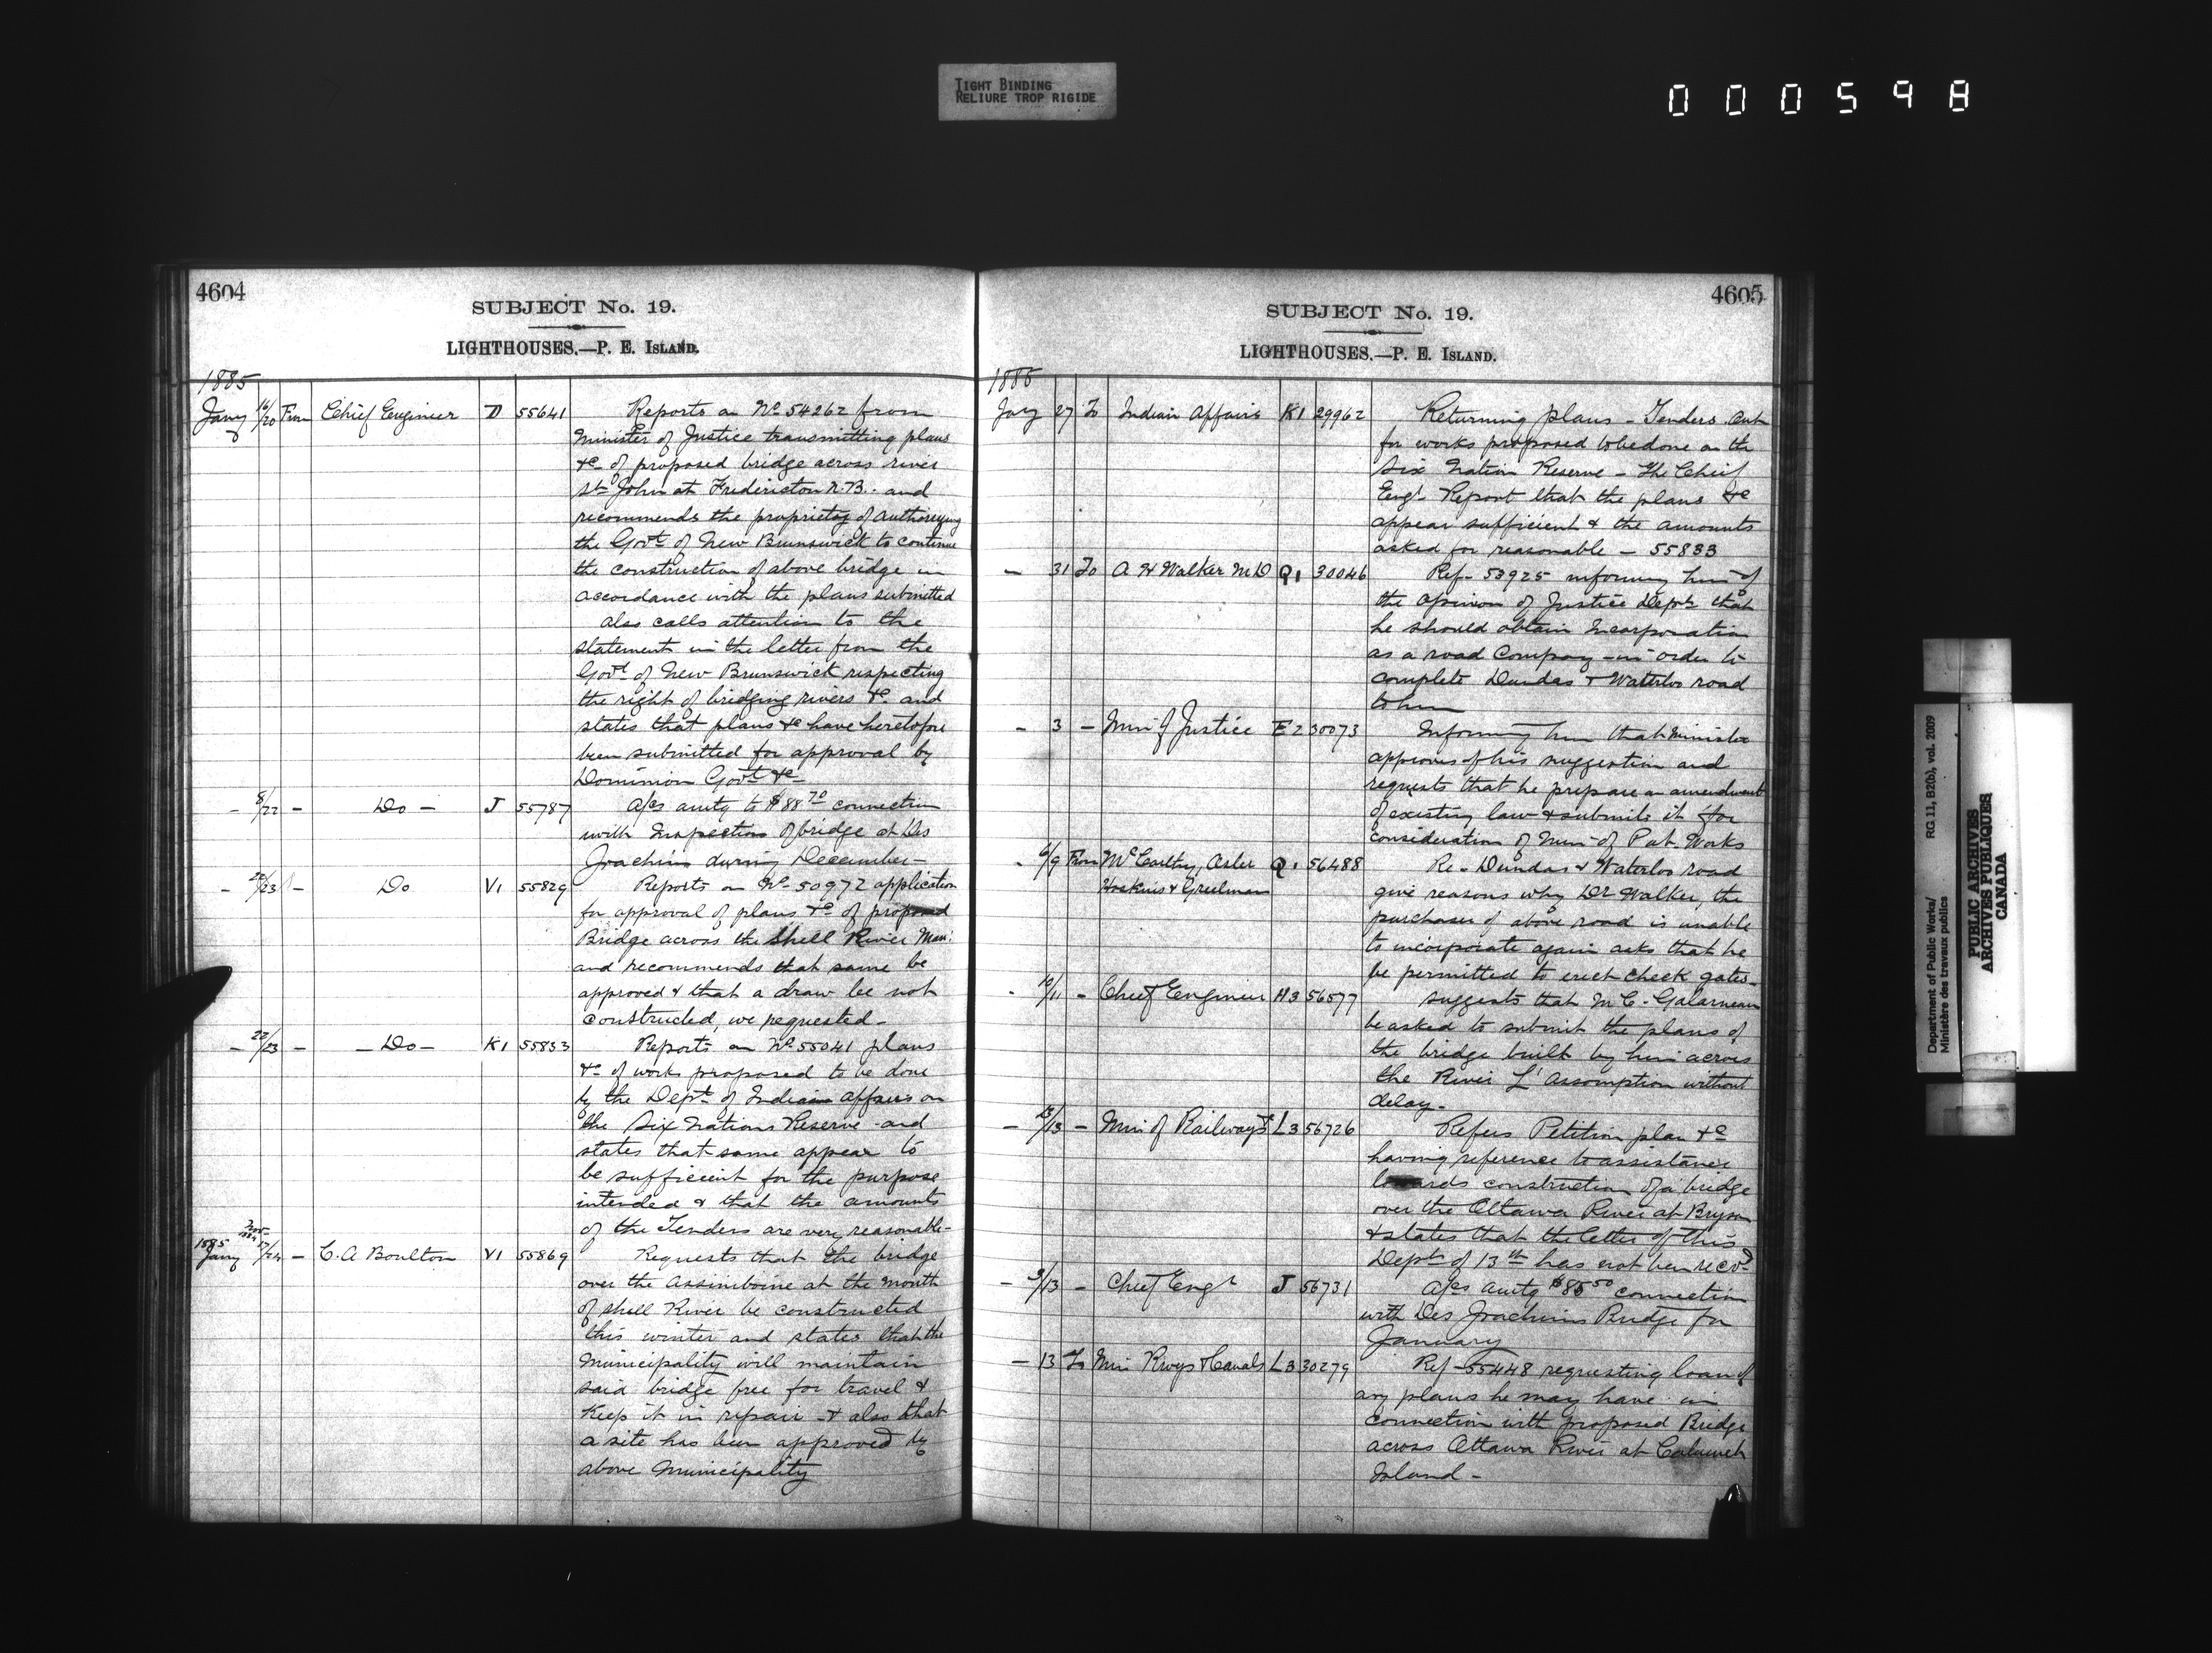 TIGHT BINDING
RELIURE TROP RIGIDE
000598
4604
SUBJECT No. 19.
LIGHTHOUSES.—P. E. ISLAND.
1885
Jany 16/20 From Chief Engineer D 55641 Reports on No. 54262 from
Minister of Justice transmitting plans
&c of proposed bridge across river
St John at Fredericton N.B. and
recommends the propriety of authorizing
the Govt. of New Brunswick to continue
the construction of above bridge in
accordance with the plans submitted
also calls attention to the
statement in the letter from the
Govt. of New Brunswick respecting
the right of bridging rivers &c and
states that plans &c have heretofore
been submitted for approval by
Dominion Govt. &c
– 8/22 – Do – J 55787 A/cs amtg to $88 70 connection
with Inspection of bridge at Des
Joachim during December –
– 22/23 – Do V1 55829 Reports on No. 50972 application
for approval of plans &c of proposed
Bridge across the Shell River Man:
and recommends that same be
approved & that a draw be not
constructed, we requested –
– 22/23 – – Do – K1 55833 Reports on No. 55041 plans
&c of works proposed to be done
by the Dept. of Indian affairs on
the Six Nations Reserve and
states that same appear to
be sufficient for the purpose
intended & that the amounts
of the Tenders are very reasonable –
Nov 1884
1885 Jany 17/24 – C. A Boulton V1 55869 Requests that the bridge
over the Assiniboine at the mouth
of Shell River be constructed
this winter and states that the
Municipality will maintain
said bridge free for travel &
keep it in repair & also that
a site has been approved by
above Municipality
4605
SUBJECT No. 19.
LIGHTHOUSES.—P. E. ISLAND.
1885
Jany 27 To Indian Affairs K1 29962 Returning plans – Tenders
for works proposed to be done on the
Six Nation Reserve – The Chief
Engr. Report that the plans &c
appear sufficient & the amounts
asked for reasonable – 55833
– 31 To A H Walker M.D Q1 30046 Ref – 53925 informing him of
the opinion of Justice Dept. that
he should obtain Incorporation
as a road Company – in order to
complete Dundas & Waterloo road
to him
– 3 – Min of Justice E2 30073 Informing him that Minister
approves of his suggestion and
requests that he prepare an amendment
of existing law & submit it for
consideration of Min – of Pub. Works
– 6/9 From McCarthy, Osler Q1 56488 Re – Dundas & Waterloo road
Hoskins & Creelman give reasons why Dr Walker, the
purchaser of above road is unable
to incorporate again asks that he
be permitted to erect check gates –
– 10/11 – Chief Engineer H3 56577 Suggests that M C. Galarneau
be asked to submit the plans of
the bridge built by him across
the River L'Assomption without
delay –
– 13/13 – Min of Railways &c L3 56726 Refers Petition plan &c
having reference to assistance
towards construction of a bridge
over the Ottawa River at Bryson
& states that the letter of this
Dept. of 13th has not been recd.
– 9/13 – Chief Engr J 56731 A/cs amtg $85 50 connection
with Des Joachims Bridge for
January
– 13 To Min Rwys & Canals L3 30279 Ref – 55448 requesting loan of
any plans he may have in
connection with proposed Bridge
across Ottawa River at Calumet
Island –
Department of Public Works/ RG 11, B2(b), vol. 2009
Ministère des travaux publics
PUBLIC ARCHIVES
ARCHIVES PUBLIQUES
CANADA